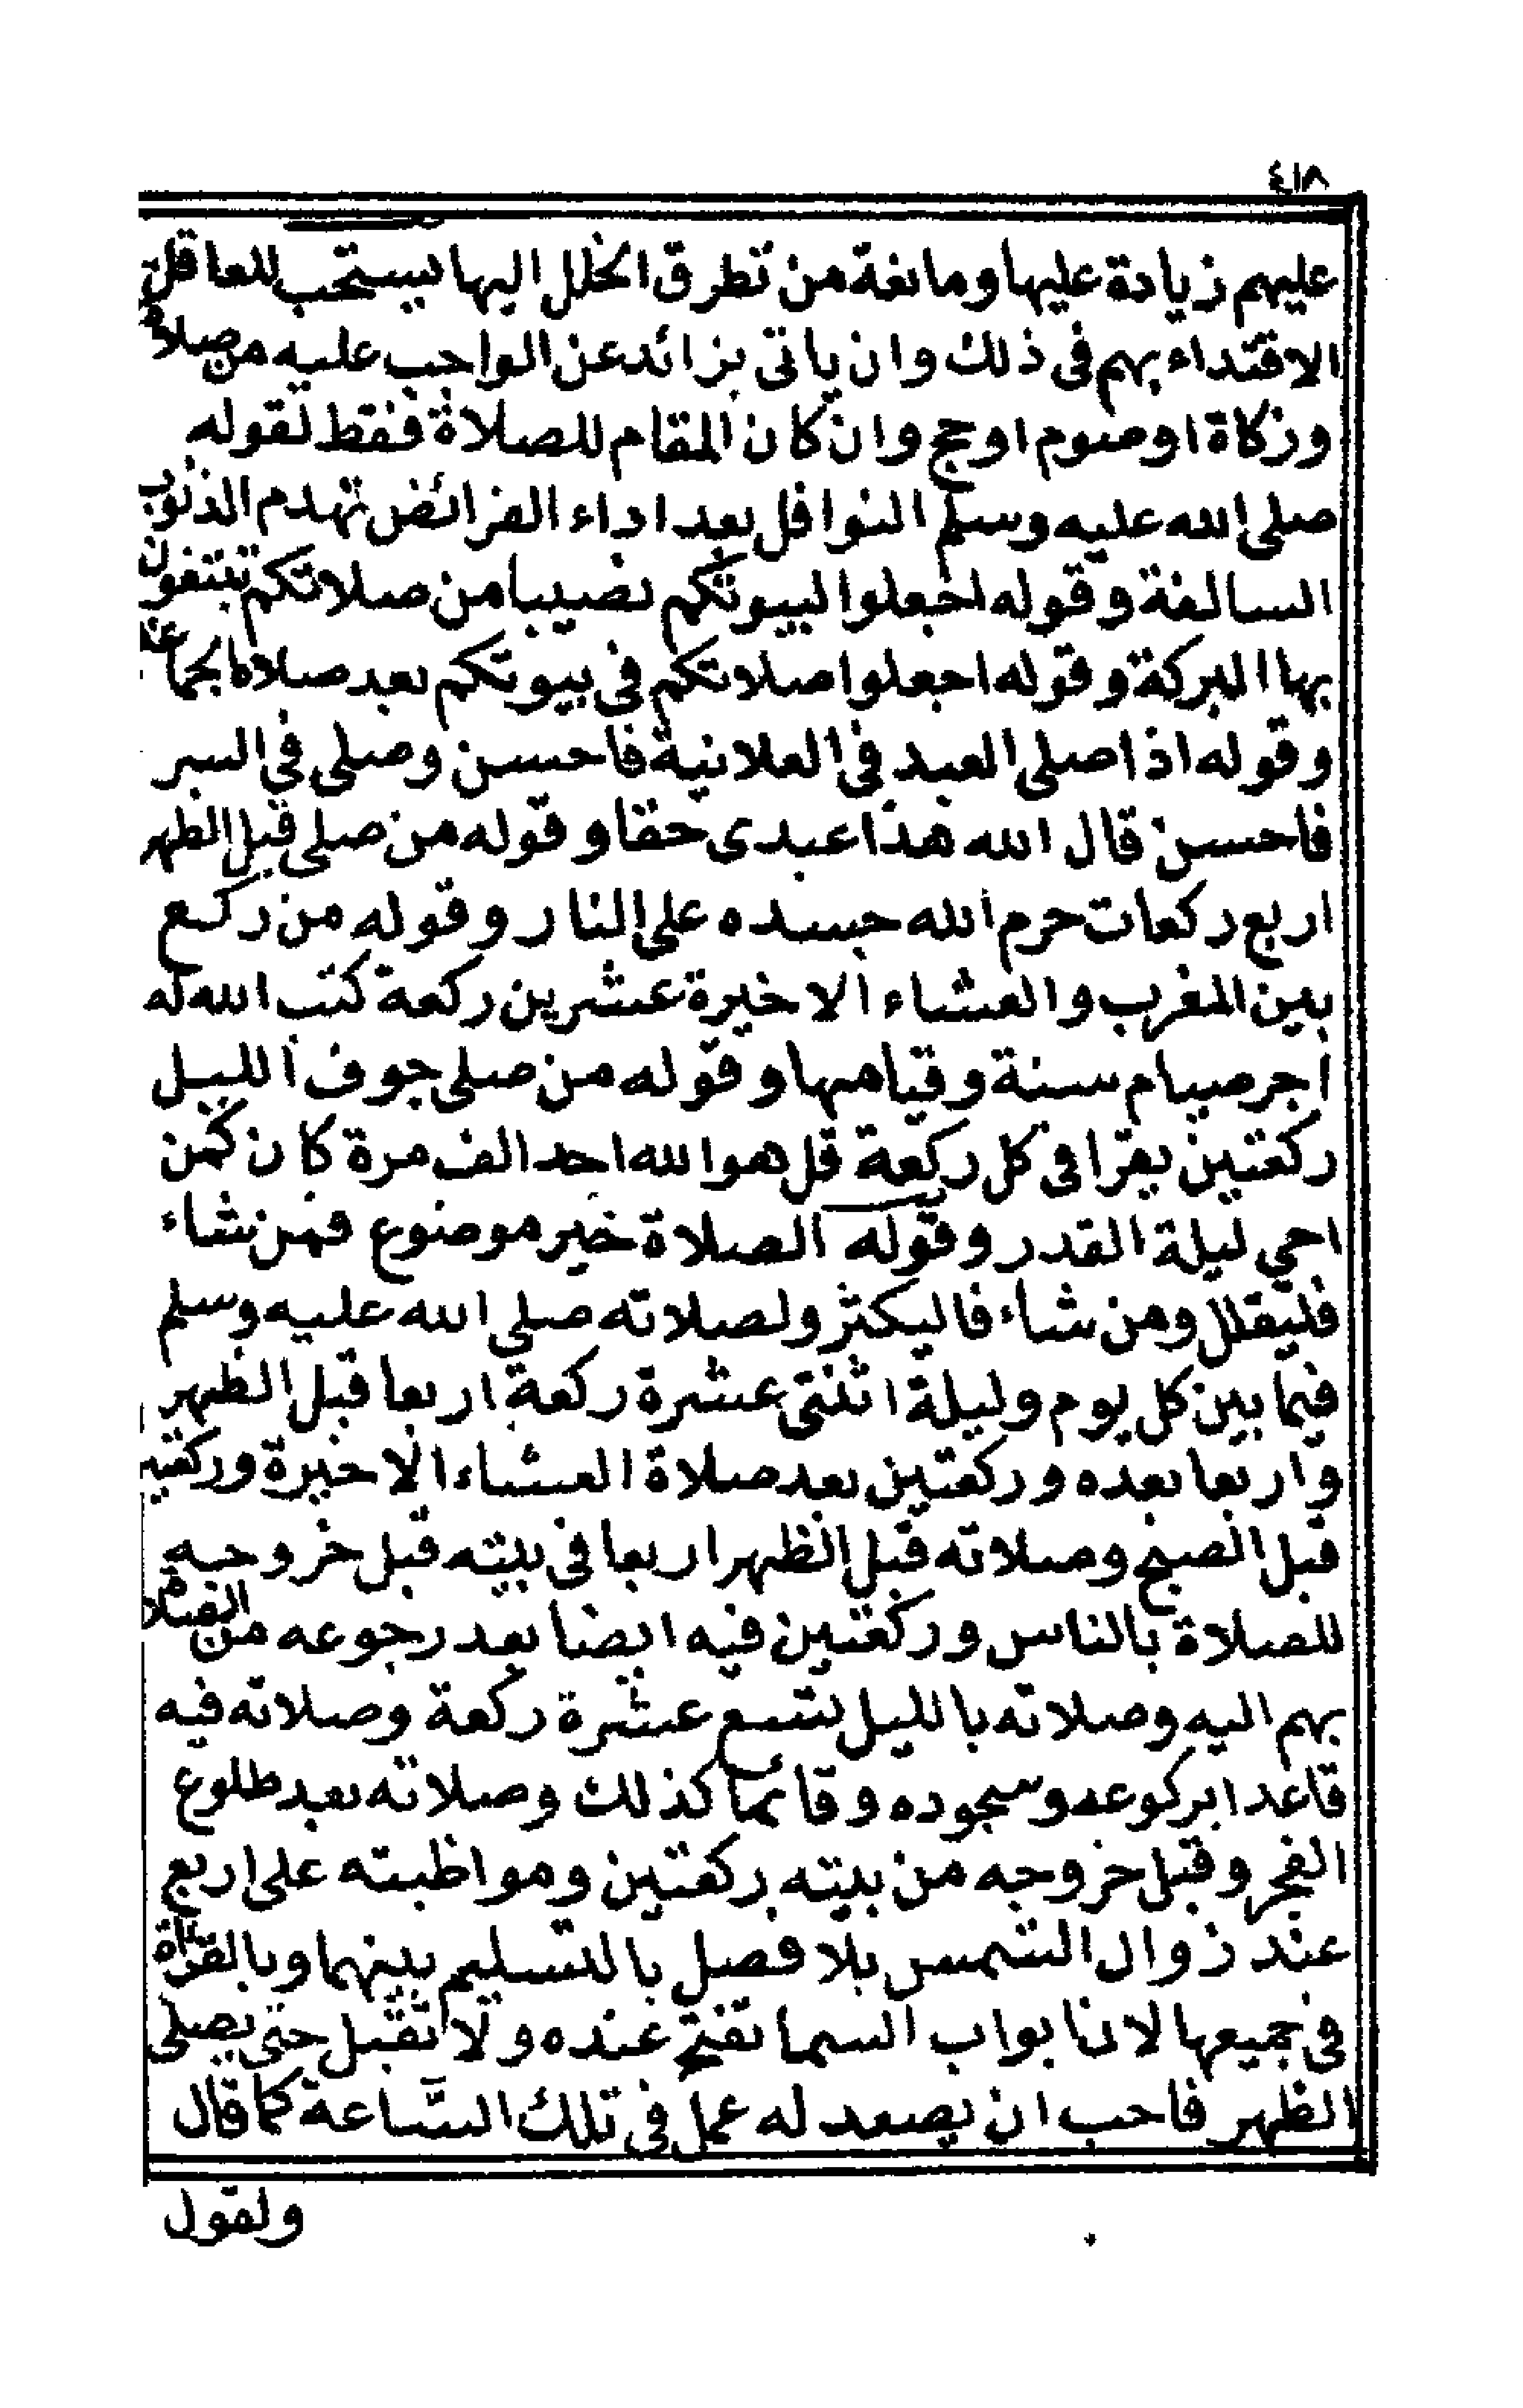 ٤١٨
عليهم زيادة عليها ومانعة من تطرق الخلل اليها يستحب للعاقل
الاقتداء بهم فى ذلك وان ياتى بزائد عن الواجب عليه من صلاة
وزكاة او صوم او حج وان كان المقام للصلاة فقط لقوله
صلى الله عليه وسلم النوافل بعد اداء الفرائض تهدم الذنوب
السالفة وقوله اجعلوا لبيوتكم نصيبا من صلاتكم تبتغون
بها البركة وقوله اجعلوا صلاتكم فى بيوتكم بعد صلاة الجماعة
وقوله اذا صلى العبد فى العلانية فاحسن وصلى في السر
فاحسن قال الله هذا عبدى حقا وقوله من صلى قبل الظهر
اربع ركعات حرم الله جسده على النار وقوله من ركع
بين المغرب والعشاء الاخيرة عشرين ركعة كتب الله له
اجر صيام سنة وقيامها وقوله من صلى جوف الليل
ركعتين يقرا فى كل ركعة قل هو الله احد الف مرة كان كمن
احي ليلة القدر وقوله الصلاة خير موضوع فمن شاء
فليقلل ومن شاء فاليكثر ولصلاته صلي الله عليه وسلم
فيما بين كل يوم وليلة اثنتى عشرة ركعة اربعا قبل الظهر
واربعا بعده وركعتين بعد صلاة العشاء الاخيرة وركعتين
قبل الصبح وصلاته قبل الظهر اربعا فى بيته قبل خروجه
للصلاة بالناس وركعتين فيه ايضا بعد رجوعه من الصلاة
بهم اليه وصلاته بالليل تسع عشرة ركعة وصلاته فيه
قاعدا بركوعه وسجوده وقائما كذلك وصلاته بعد طلوع
الفجر وقبل خروجه من بيته ركعتين ومواظبته على اربع
عند زوال الشمس بلا فصل بالتسليم بينهما وبالقراة
فى جميعها لان ابواب السما تفتح عنده ولا تقبل حتى يصلى
الظهر فاحب ان يصعد له عمل فى تلك السّاعة كما قال
ولقول